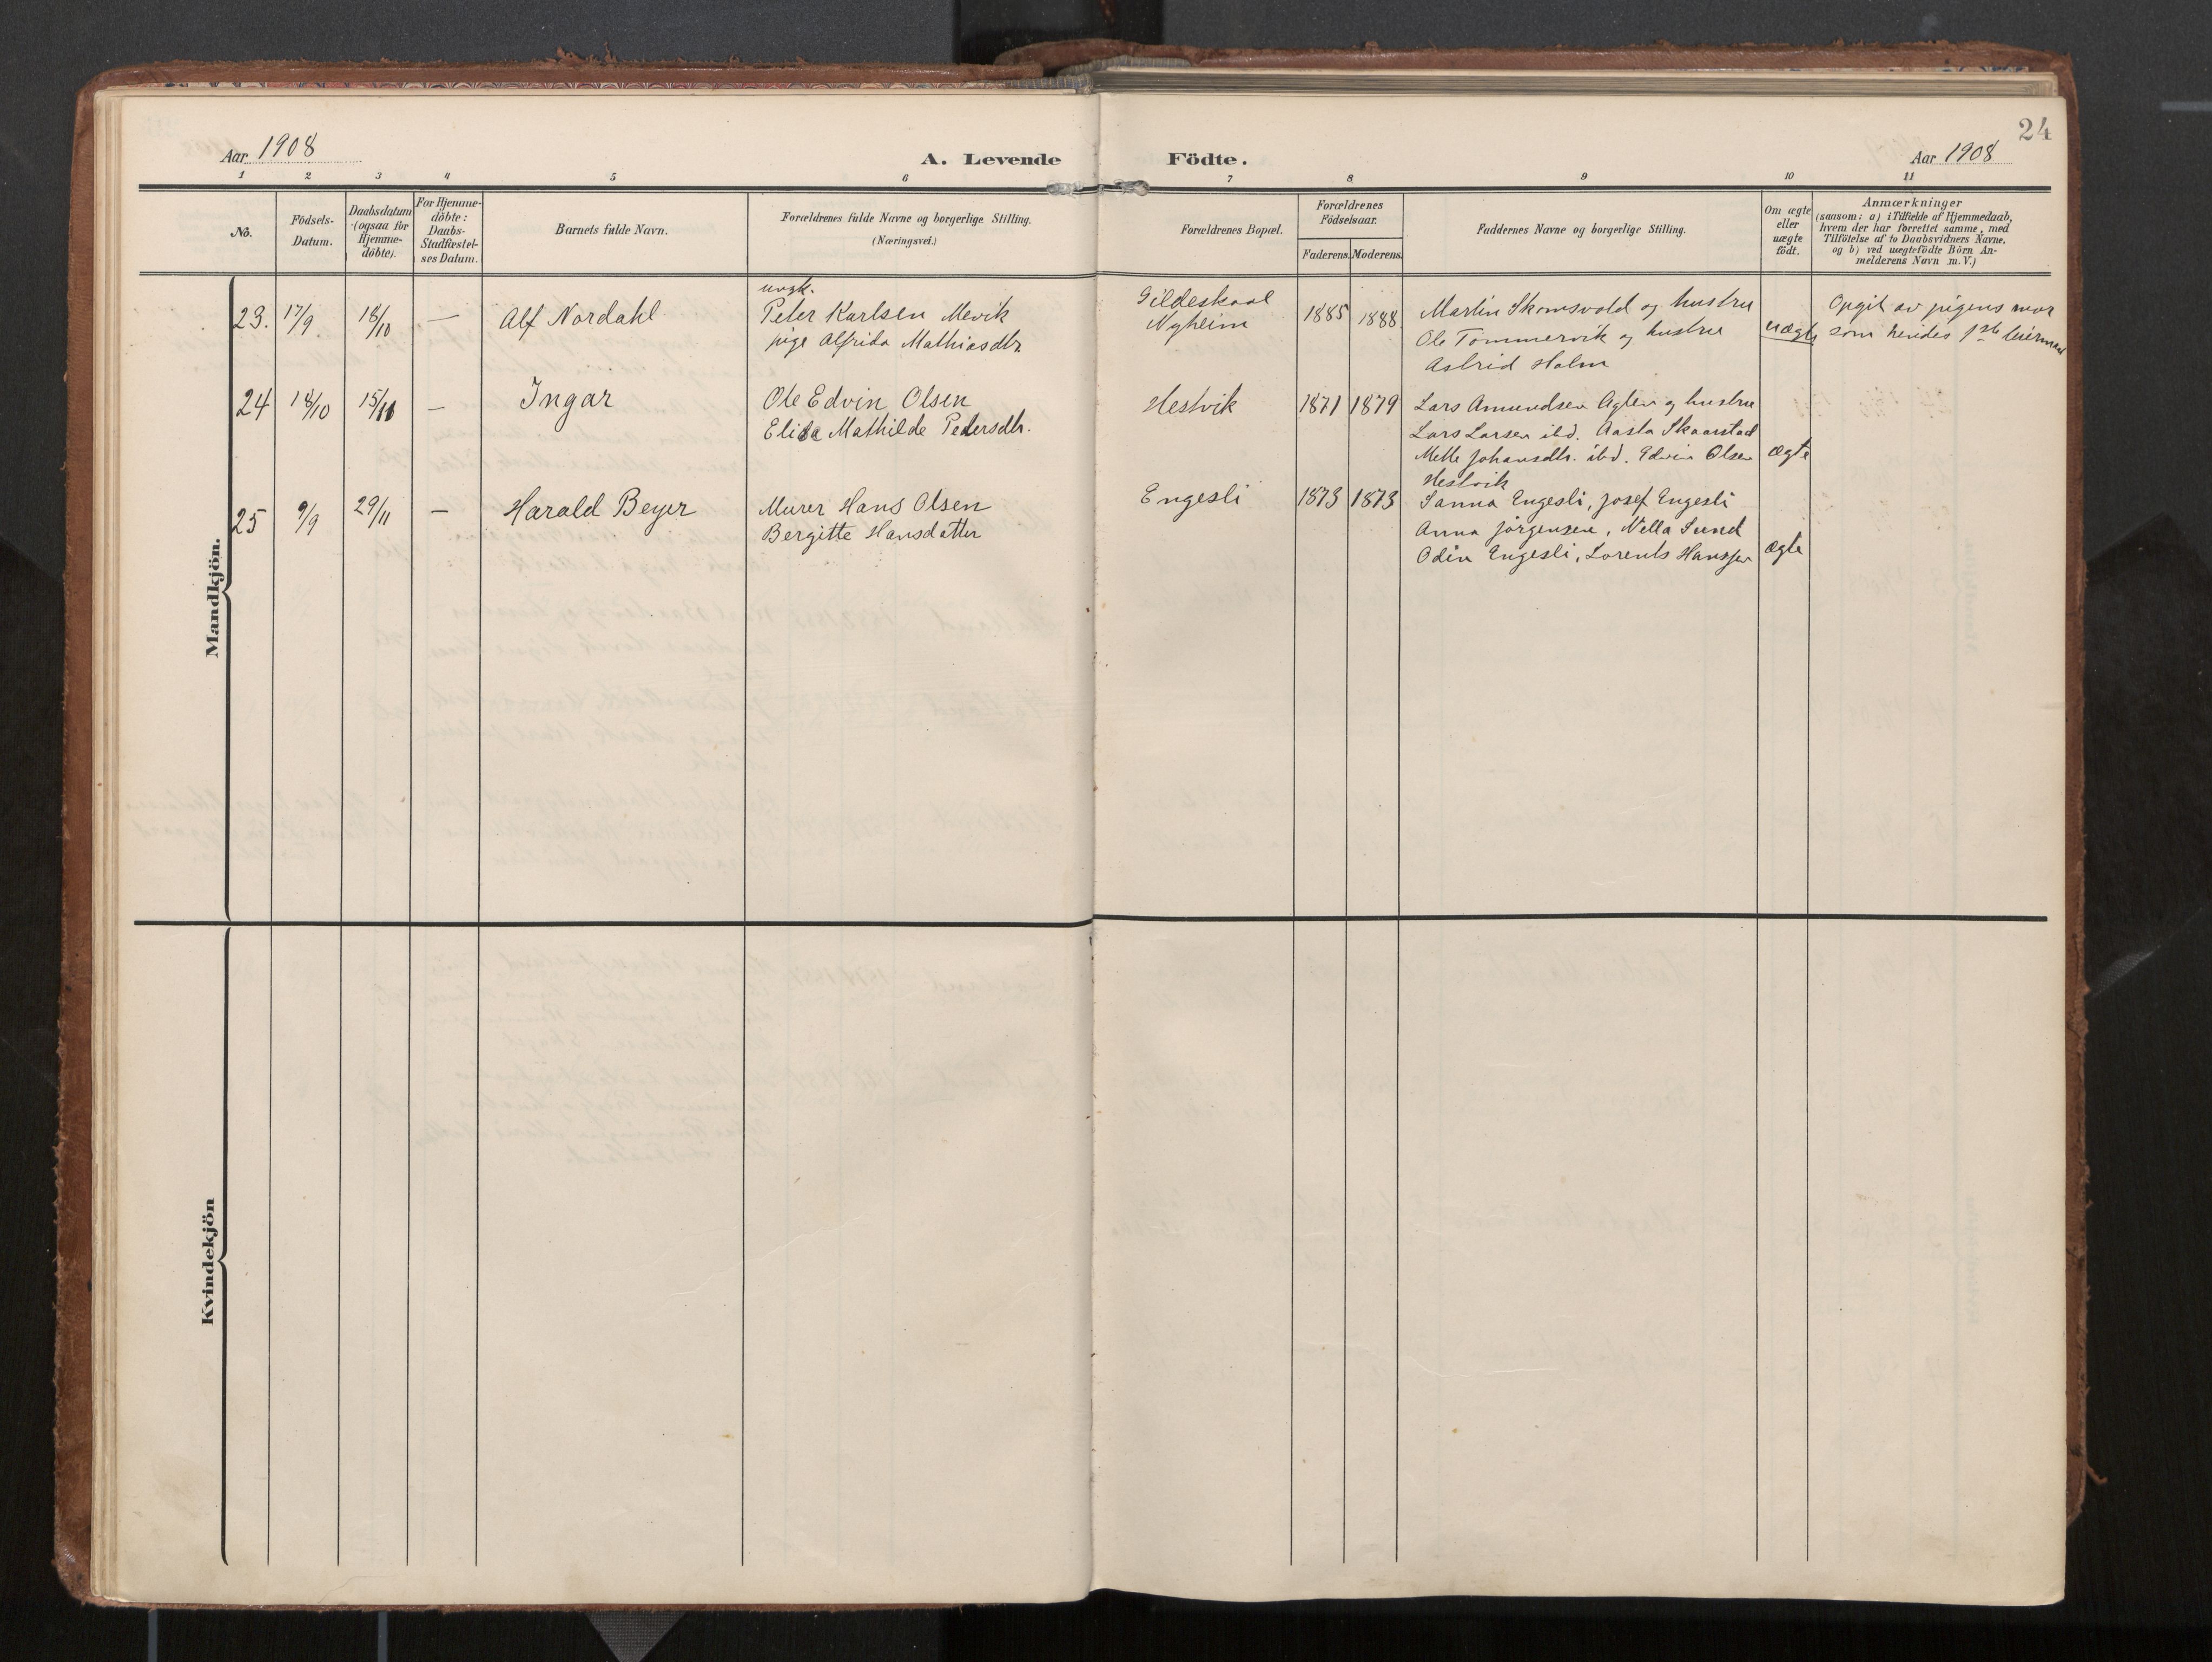 24
Aar 1908
A. Levende Födte.
Aar 1908
1 2 3 4 5 6 7 8 9 10 11
No.
Födsels-
Datum.
Daabsdatum
(ogsaa for
Hjemme-
döbte).
For Hjemme-
döbte:
Daabs-
Stadfæstel-
ses Datum.
Barnets fulde Navn.
Forældrenes fulde Navne og borgerlige Stilling.
(Næringsvei.)
Forældrenes Bopæl.
Forældrenes
Födselsaar.
Faderens. Moderens.
Faddernes Navne og borgerlige Stilling.
Om ægte
eller
uægte
födt.
Anmærkninger
(saasom: a) i Tilfælde af Hjemmedaab,
hvem der har forrettet samme, med
Tilföielse af to Daabsvidners Navne,
og b) ved uægtefödte Börn An-
melderens Navn m. V.)
Mandkjön.
23. 17/9 18/10 — Alf Nordahl
ungk.
Peter Karlsen Mevik
pige Alfrida Mathiasdtr.
Gildeskaal
Nyheim
1885 1888
Martin Skomsvold og hustru
Ole Tömmervik og hustru
Astrid Holm
uægte
Opgit av pigens mor
som hendes 1ste leiermaal
24 18/10 15/11 — Ingar
Ole Edvin Olsen
Elida Mathilde Pedersdtr.
Hestvik
1871 1879
Lars Amundsen Agten og hustru
Lars Larsen ibd. Aasta Skaarstad
Mette Johansdtr. ibd. Edvin Olsen
Hestvik
ægte
25 9/9 29/11 — Harald Beyer
Murer Hans Olsen
Bergitte Hansdatter
Engesli
1873 1873
Sanna Engesli, Josef Engesli
Anna Jörgensen, Nella Sund
Odin Engesli, Lorents Hanssen
ægte
Kvindekjön